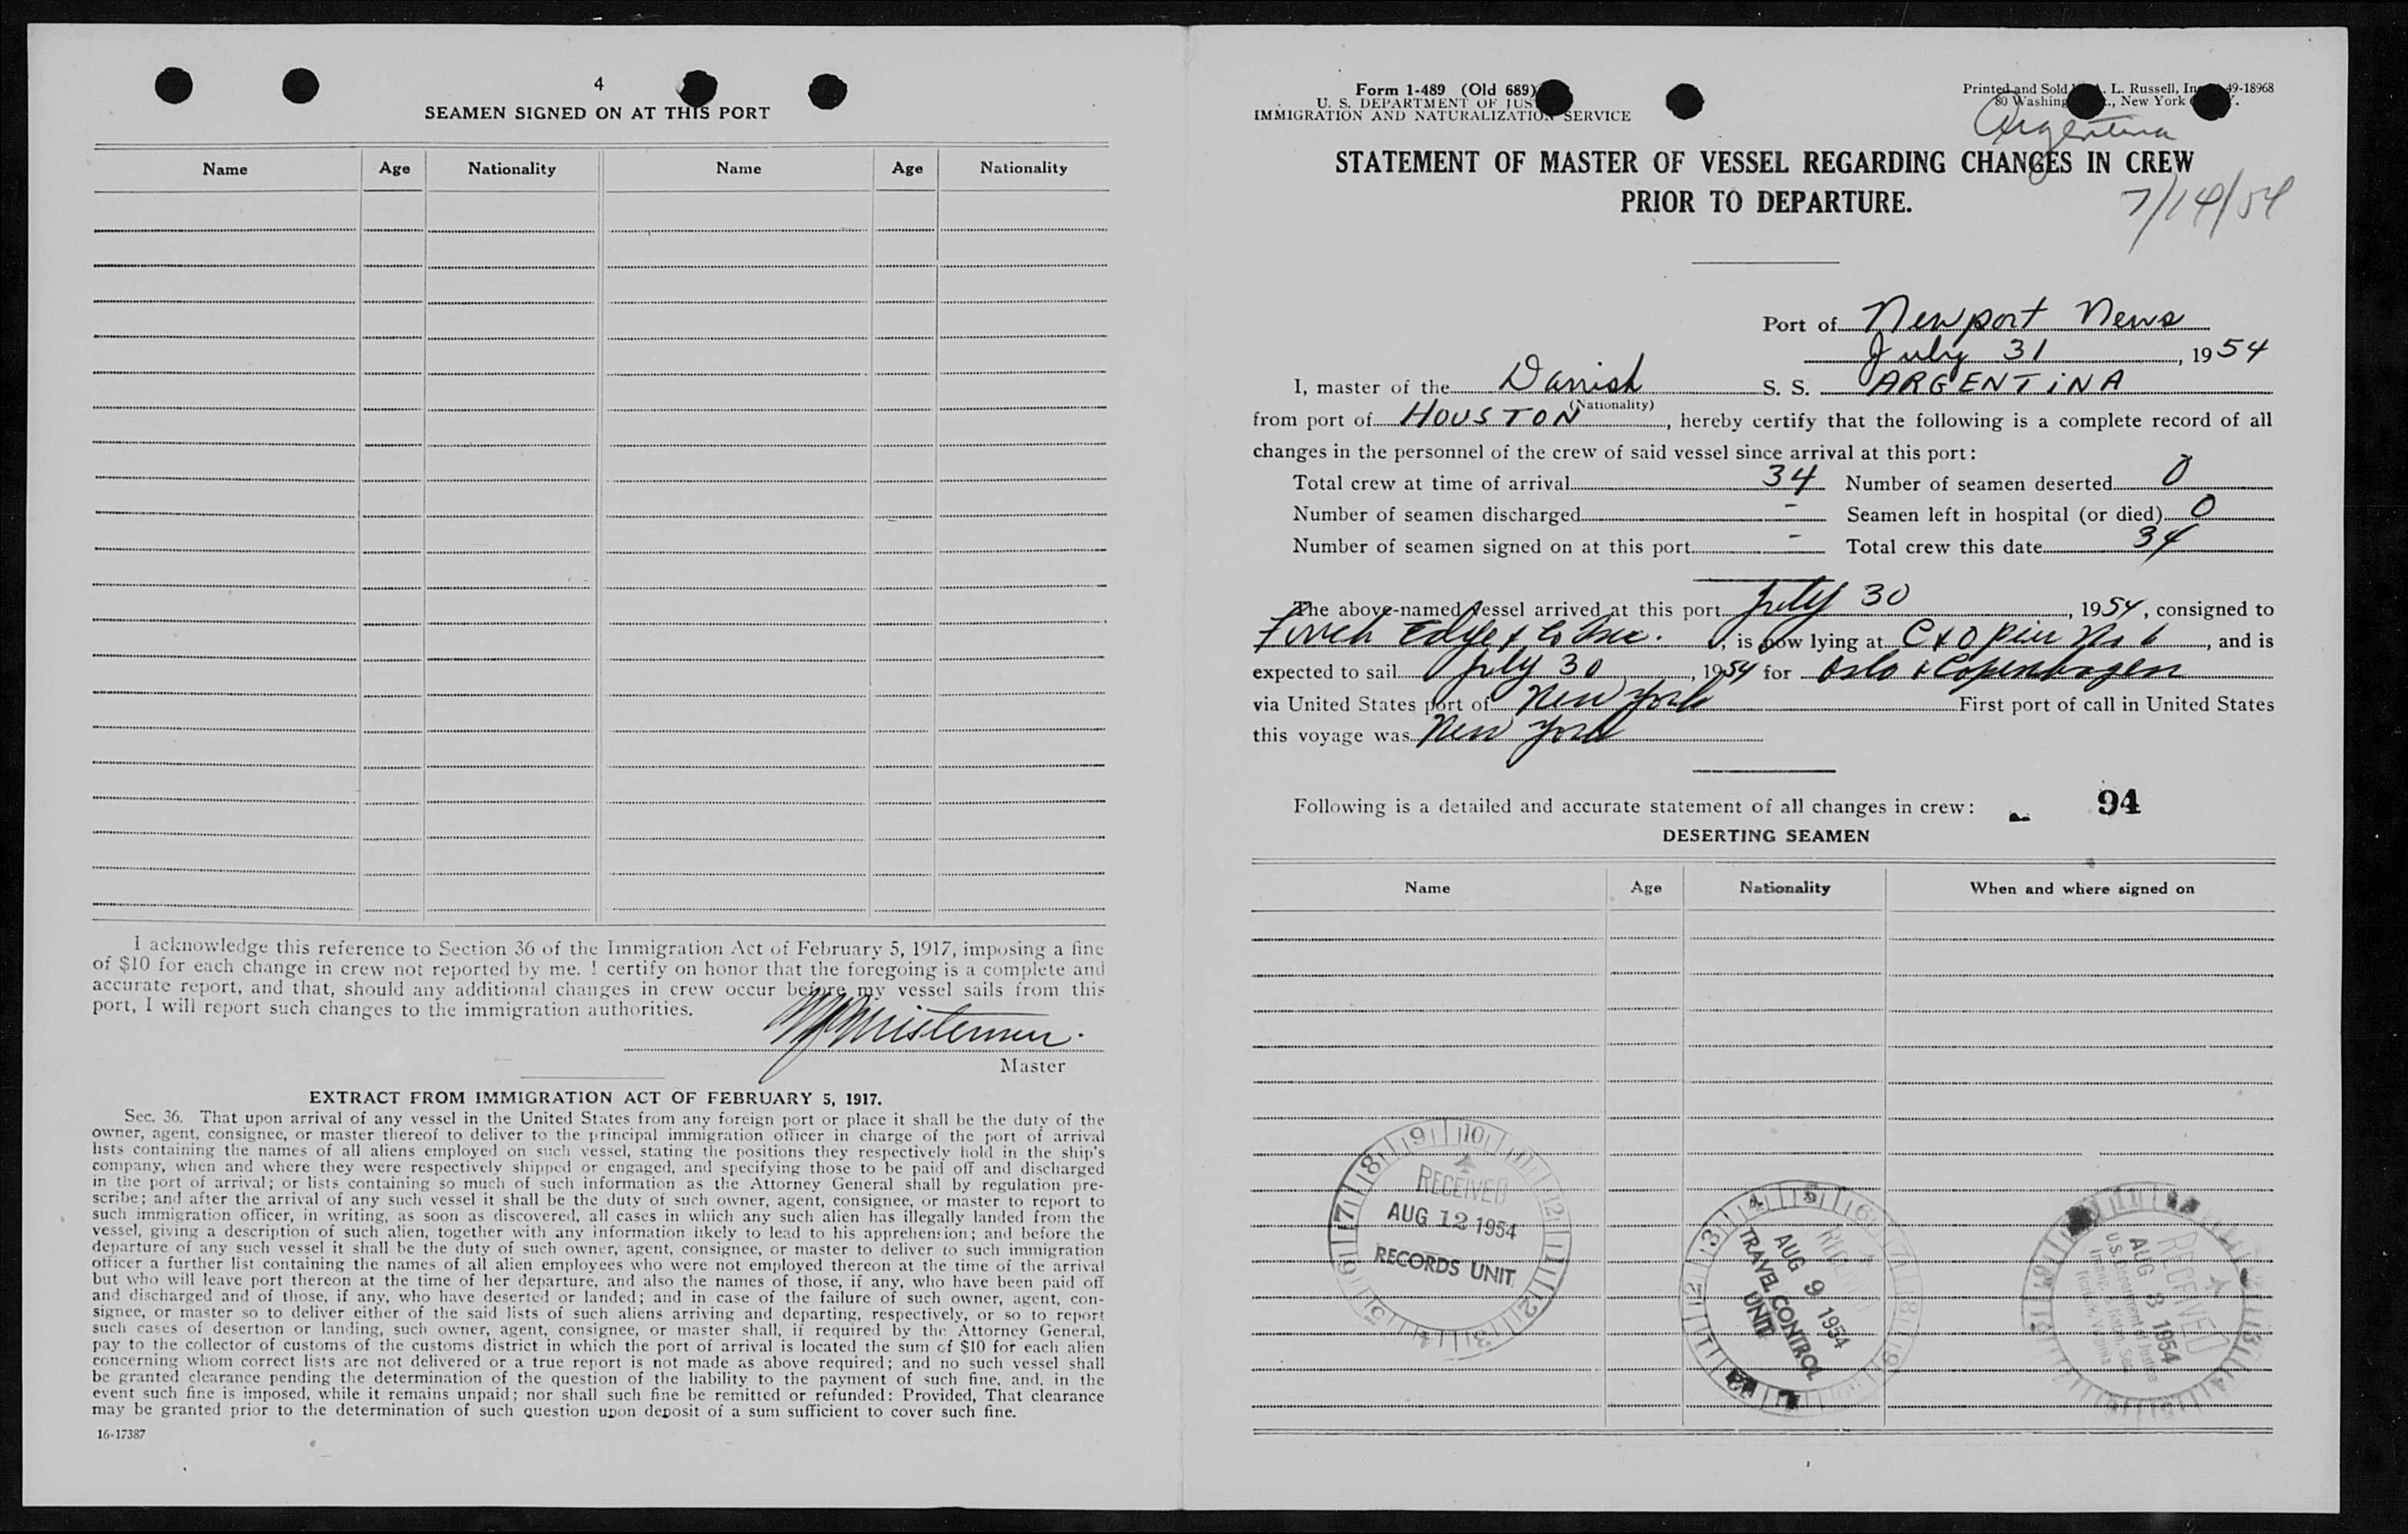 4
SEAMEN SIGNED ON AT THIS PORT
Name Age Nationality Name Age Nationality
I acknowledge this reference to Section 36 of the Immigration Act of February 5, 1917, imposing a fine
of $10 for each change in crew not reported by me. I certify on honor that the foregoing is a complete and
accurate report, and that, should any additional changes in crew occur before my vessel sails from this
port, I will report such changes to the immigration authorities.
Master
EXTRACT FROM IMMIGRATION ACT OF FEBRUARY 5, 1917.
Sec. 36. That upon arrival of any vessel in the United States from any foreign port or place it shall be the duty of the
owner, agent, consignee, or master thereof to deliver to the principal immigration officer in charge of the port of arrival
lists containing the names of all aliens employed on such vessel, stating the positions they respectively hold in the ship's
company, when and where they were respectively shipped or engaged, and specifying those to be paid off and discharged
in the port of arrival; or lists containing so much of such information as the Attorney General shall by regulation pre-
scribe; and after the arrival of any such vessel it shall be the duty of such owner, agent, consignee, or master to report to
such immigration officer, in writing, as soon as discovered, all cases in which any such alien has illegally landed from the
vessel, giving a description of such alien, together with any information likely to lead to his apprehension; and before the
departure of any such vessel it shall be the duty of such owner, agent, consignee, or master to deliver to such immigration
officer a further list containing the names of all alien employees who were not employed thereon at the time of the arrival
but who will leave port thereon at the time of her departure, and also the names of those, if any, who have been paid off
and discharged and of those, if any, who have deserted or landed; and in case of the failure of such owner, agent, con-
signee, or master so to deliver either of the said lists of such aliens arriving and departing, respectively, or so to report
such cases of desertion or landing, such owner, agent, consignee, or master shall, if required by the Attorney General,
pay to the collector of customs of the customs district in which the port of arrival is located the sum of $10 for each alien
concerning whom correct lists are not delivered or a true report is not made as above required; and no such vessel shall
be granted clearance pending the determination of the question of the liability to the payment of such fine, and, in the
event such fine is imposed, while it remains unpaid; nor shall such fine be remitted or refunded: Provided, That clearance
may be granted prior to the determination of such question upon deposit of a sum sufficient to cover such fine.
16-17387
Form 1-489 (Old 689)
U. S. DEPARTMENT OF JUS
IMMIGRATION AND NATURALIZATION SERVICE
Printed and Sold L. Russell, Inc. 49-18968
80 Washing New York
Argentina
STATEMENT OF MASTER OF VESSEL REGARDING CHANGES IN CREW
PRIOR TO DEPARTURE.
7/14/54
Port of Newport News
July 31, 1954
I, master of the Danish S. S. ARGENTINA
(Nationality)
from port of HOUSTON, hereby certify that the following is a complete record of all
changes in the personnel of the crew of said vessel since arrival at this port:
Total crew at time of arrival 34 Number of seamen deserted 0
Number of seamen discharged - Seamen left in hospital (or died) 0
Number of seamen signed on at this port - Total crew this date 34
The above-named vessel arrived at this port July 30, 1954, consigned to
Edye & Co Inc., is now lying at C & O Pier No 6, and is
expected to sail July 30, 1954 for Oslo & Copenhagen
via United States port of New York First port of call in United States
this voyage was New York
Following is a detailed and accurate statement of all changes in crew: 94
DESERTING SEAMEN
Name Age Nationality When and where signed on
RECEIVED
AUG 12 1954
RECORDS UNIT
RECEIVED
AUG 9 1954
TRAVEL CONTROL
UNIT
RECEIVED
AUG 3 1954
U.S. Department of Justice
Immig. & Natzn. Serv.
Norfolk, Virginia